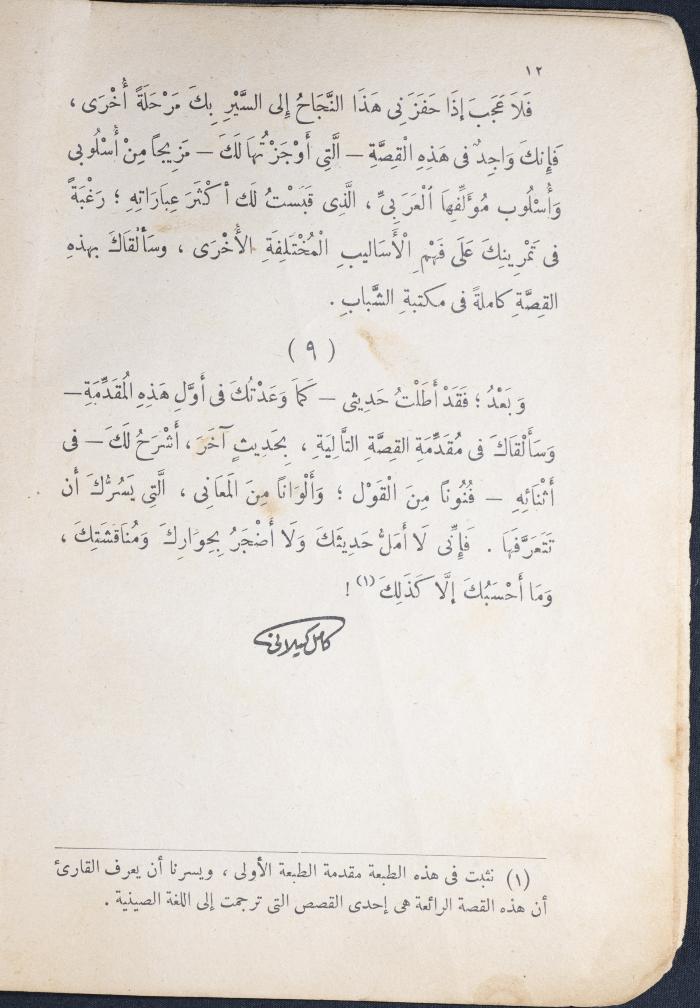 ١٢
فَلَا عَجَبَ إِذَا حَفَزَنِى هَذَا النَّجَاحُ إِلى السَّيْرِ بِكَ مَرْحَلَةً أُخْرَى ،
فَإِنكَ وَاجِدٌ فى هَذِهِ الْقِصَّةِ — الَّتِى أَوْجَزْتُهَا لَكَ — مَزِيجًا مِنْ أُسْلُوبِى
وَأُسْلُوبِ مُؤَلِّفِهَا الْعَرَبِىِّ ، الَّذِى قَبَسْتُ لَكَ أَكْثَرَ عِبَارَاتِهِ ؛ رَغْبَةً
فى تَمْرِينِكَ عَلَى فَهْمِ الْأَسَالِيبِ الْمُخْتَلِفَةِ الْأُخْرَى ، وسَأَلْقَاكَ بهذهِ
القِصَّةِ كاملةً فى مكتبةِ الشَّبابِ .
( ٩ )
وَ بَعْدُ ؛ فَقَدْ أَطَلْتُ حَدِيثِى — كَمَا وَعَدْتُكَ فى أَوَّلِ هَذِهِ الْمُقَدِّمَةِ —
وَسَأَلْقَاكَ فى مُقَدِّمَةِ القِصَّةِ التَّالِيَةِ ، بِحَدِيثٍ آخَرَ ، أَشْرَحُ لَكَ — فى
أَثْنَائِهِ — فُنُونًا مِنَ الْقَوْل ؛ وَأَلْوَانًا مِنَ الْمَعَانِى ، الَّتِى يَسُرُّكَ أَن
تَتَعَرَّفَهَا . فَإِنِّى لَا أَمَلُّ حَدِيثَكَ وَلَا أَضْجَرُ بِحِوَارِكَ وَمُنَاقَشَتِكَ ،
وَمَا أَحْسَبُكَ إِلَّا كَذَلِكَ (١) !
كامل كيلانى
(١) نثبت فى هذه الطبعة مقدمة الطبعة الأولى ، ويسرنا أن يعرف القارئ
أن هذه القصة الرائعة هى إحدى القصص التى ترجمت إلى اللغة الصينية .